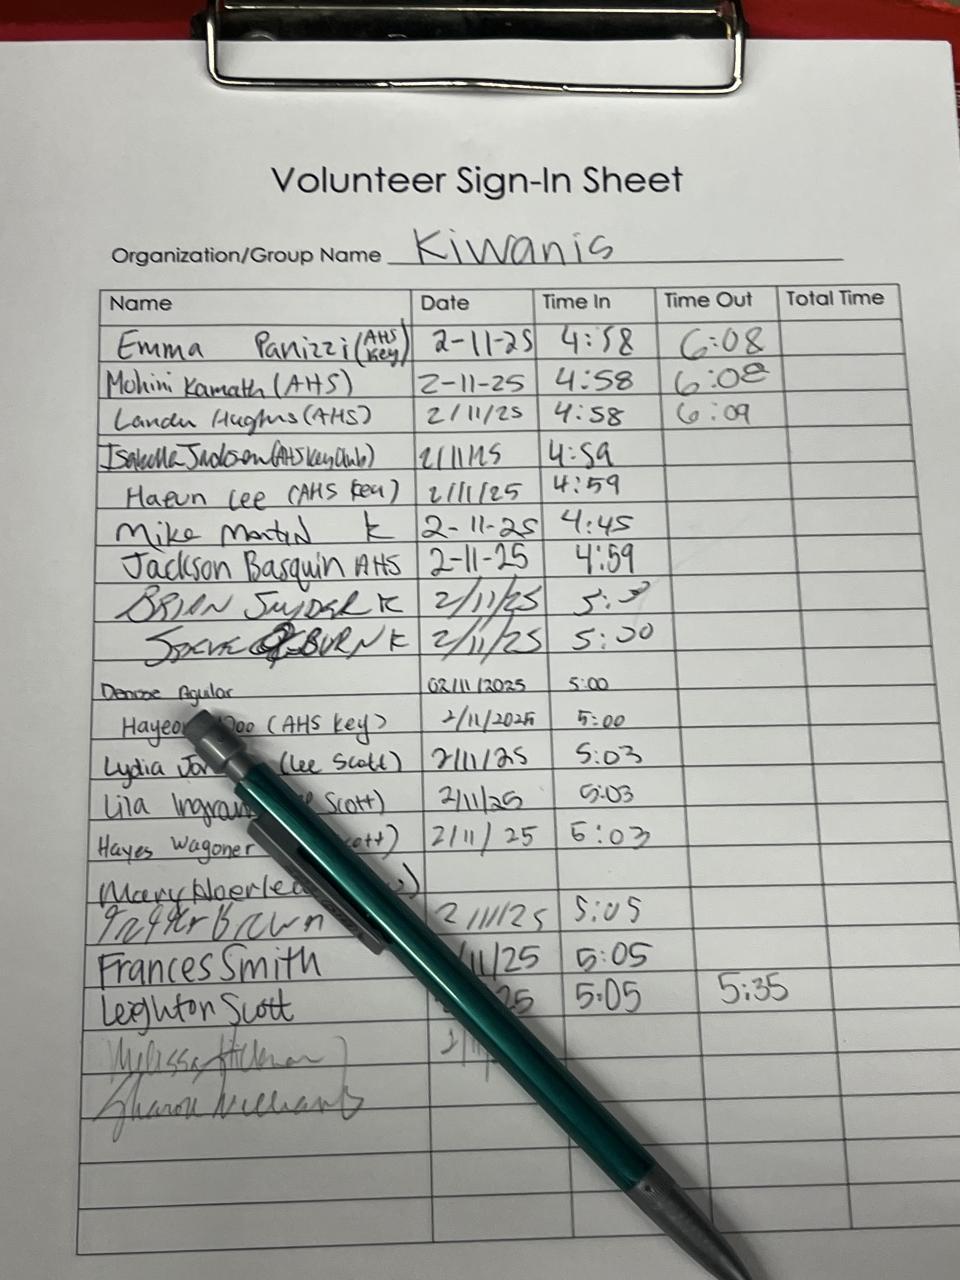 Volunteer Sign-In Sheet
Organization/Group Name Kiwanis
Name Date Time In Time Out Total Time
Emma Panizzi (AHS Key) 2-11-25 4:58 6:08
Mohini Kamath (AHS) 2-11-25 4:58 6:08
Landen Hughes (AHS) 2/11/25 4:58 6:09
Isabella Jackson (AHS Key Club) 2/11/25 4:59
Haeun Lee (AHS Key) 2/11/25 4:59
Mike Martin K 2-11-25 4:45
Jackson Basquin AHS 2-11-25 4:59
BRIAN SNYDER K 2/11/25
STEVE BURN K 2/11/25 5:00
Aguilar 02/11/2025 5:00
(AHS Key) 2/11/2025 5:00
Lydia (Lee Scott) 2/11/25 5:03
Lila Scott) 2/11/25 5:03
Hayes Wagoner 2/11/25 5:03
Mary
Brown 2/11/25 5:05
Frances Smith /11/25 5:05
Leighton Scott 25 5:05 5:35
Melissa
Sharon Williams